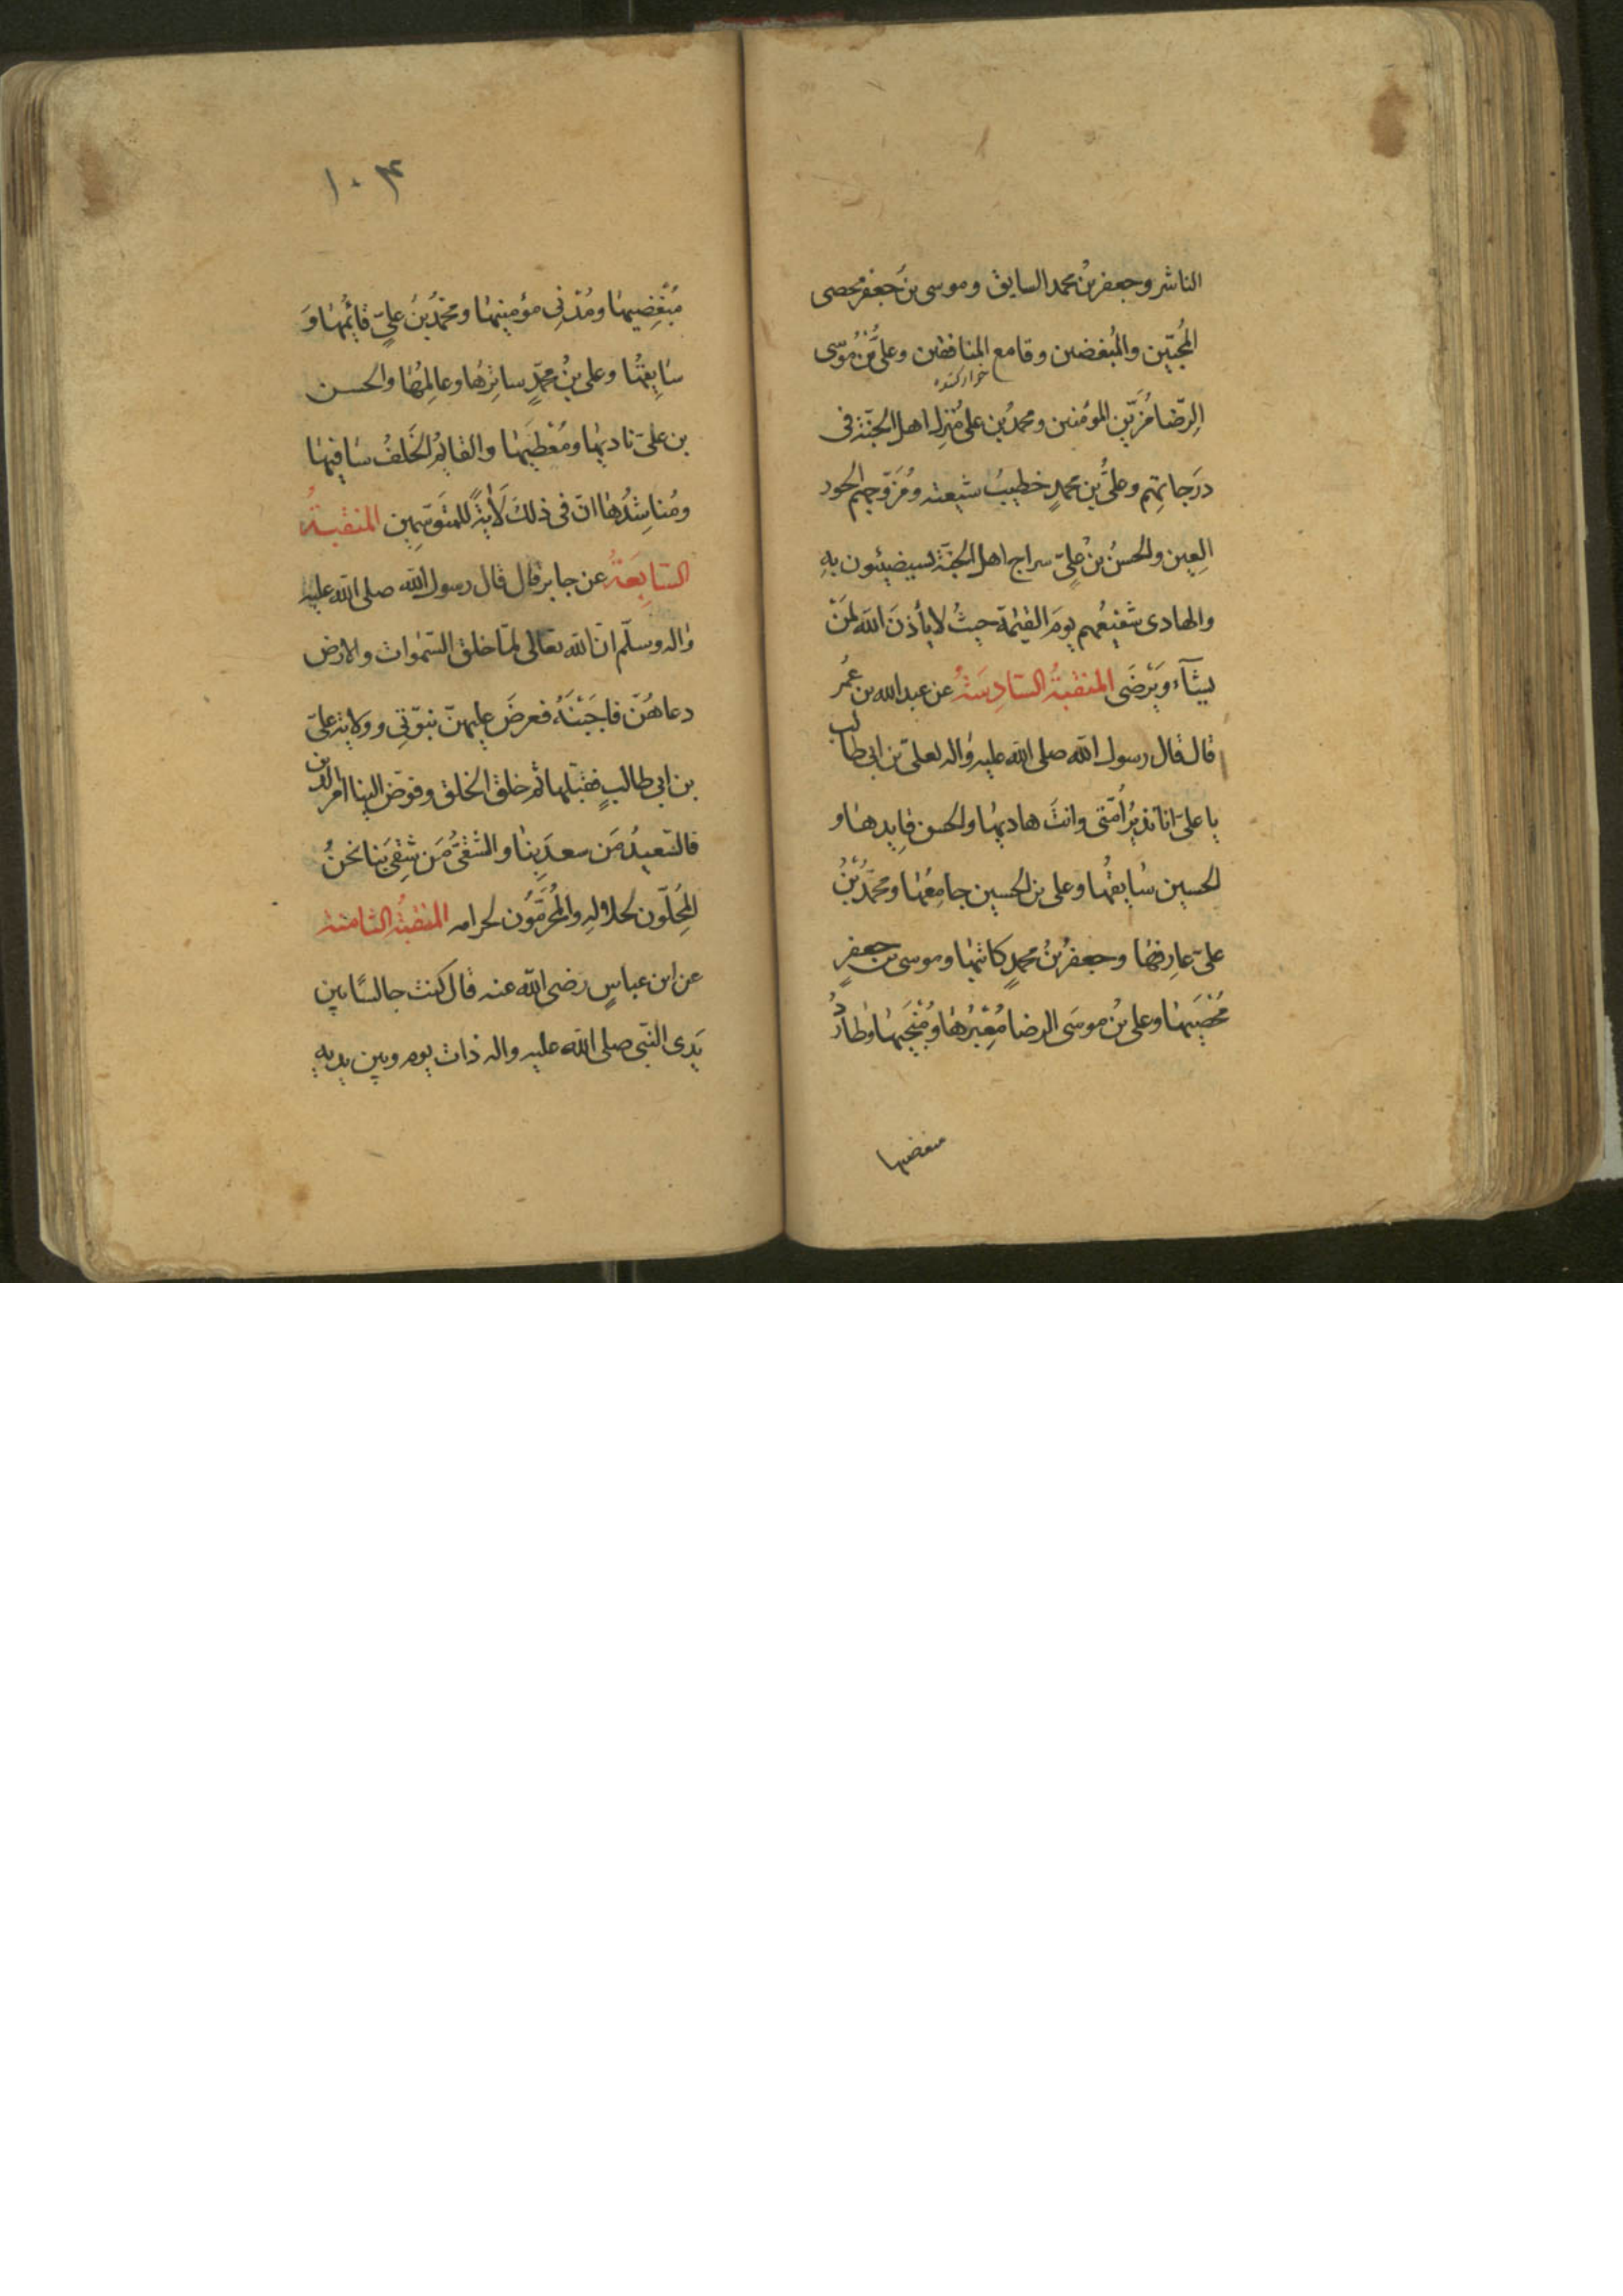 الناشر وجعفر بنُ محمد السایق وموسی بنُ جَعفر محصی
المُحِبّین والمُبغضین وقامع المنافقین وعلیُّ بنُ مُوسَی
خوار کننده
الرِّضا مُزَیِّن المؤمنین ومحمدُ بن علی مُنزِل اهل الجنّة فی
دَرَجاتهِم وعلیُّ بن محمدٍ خطیبُ شیعته ومُزَوّجهم الحور
العِین والحسنُ بنُ علیّ سراج اهل الجنّة یستضیئون بهِ
والهادی شَفیعُهم یومَ القیٰمة حیثُ لا یأذنَ اللّه لمَنْ
یشآء ویَرْضَی المنقبةُ السّادِسَةُ عن عبدالله بن عُمَر
قال قال رسول اللّه صلی اللّه علیه واله لعلیّ بن ابی طالب
یا علیّ انا نذیرُ اُمّتی وانتَ هادیها والحسن قایدها و
الحسین سٰایقُها وعلی بن الحسین جامِعُها ومحمّدُ بْنُ
علیّ عارِفها وجعفرُ بنُ محمدٍ کاتبها وموسی بن جعفرٍ
مُحْصِیَها وعلی بنُ موسَی الرضا مُعَبِّرُها ومُنْجِیَها وطارُد
مبغضیها
۱۰۳
مُبْغِضِیها ومُدْنی مؤمنِیها ومحمّدُ بنُ علیٍّ قائمُها وَ
سٰایِقُها وعلی بنُ محمّدٍ ساتِرُها وعالِمُها والحسن
بن علیّ نادیها ومُعْطِیَها والقائمُ الخَلَفُ سٰاقیها
ومُناشِدُها انّ فی ذلكَ لَاٰیةً للمتَوَسِّمِین المنقبةُ
السّابِعَةُ عن جابر قال قال رسول اللّه صلی اللّه علیه
واله وسلّم انّ اللّه تعالی لمّا خلق السّمٰوات والارض
دعاهُنّ فاجَبْنَهُ فعرضَ علیهنّ نبوّتی وولایة علیّ
بن ابی طالبٍ فقبّلهٰا ثم خلق الخلق وفوّض الینا امر الدین
فالسّعیدُ مَن سعدَ بِنا والشّقیُّ مَن شَقِیَ بنا نحنُ
المُحِلّون لحلالِهِ والمُحَرِّمُون لحرامه المنقبةُ الثامنة
عن ابن عباسٍ رَضی اللّه عنه قال کنت جالسًا بین
یَدَی النّبی صلی اللّه علیه واله ذات یوم وبین یدیهِ